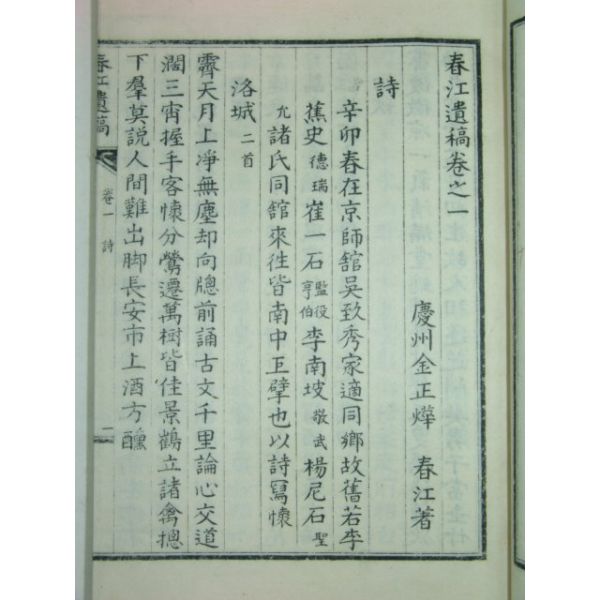 春江遺稿卷之一
慶州金正燁 春江著
詩
辛卯春在京師舘吳致秀家適同鄉故舊若李
蕉史德瑞崔一石亨伯監役李南坡敬武楊尼石聖
允諸氏同舘來徃皆南中巨擘也以詩寫懷
洛城二首
霽天月上凈無塵却向牕前誦古文千里論心交道
濶三宵握手客懷分鶯遷萬樹皆佳景鶴立諸禽摠
下羣莫說人間難出脚長安市上酒方醺
春江遺稿
卷一 詩
一